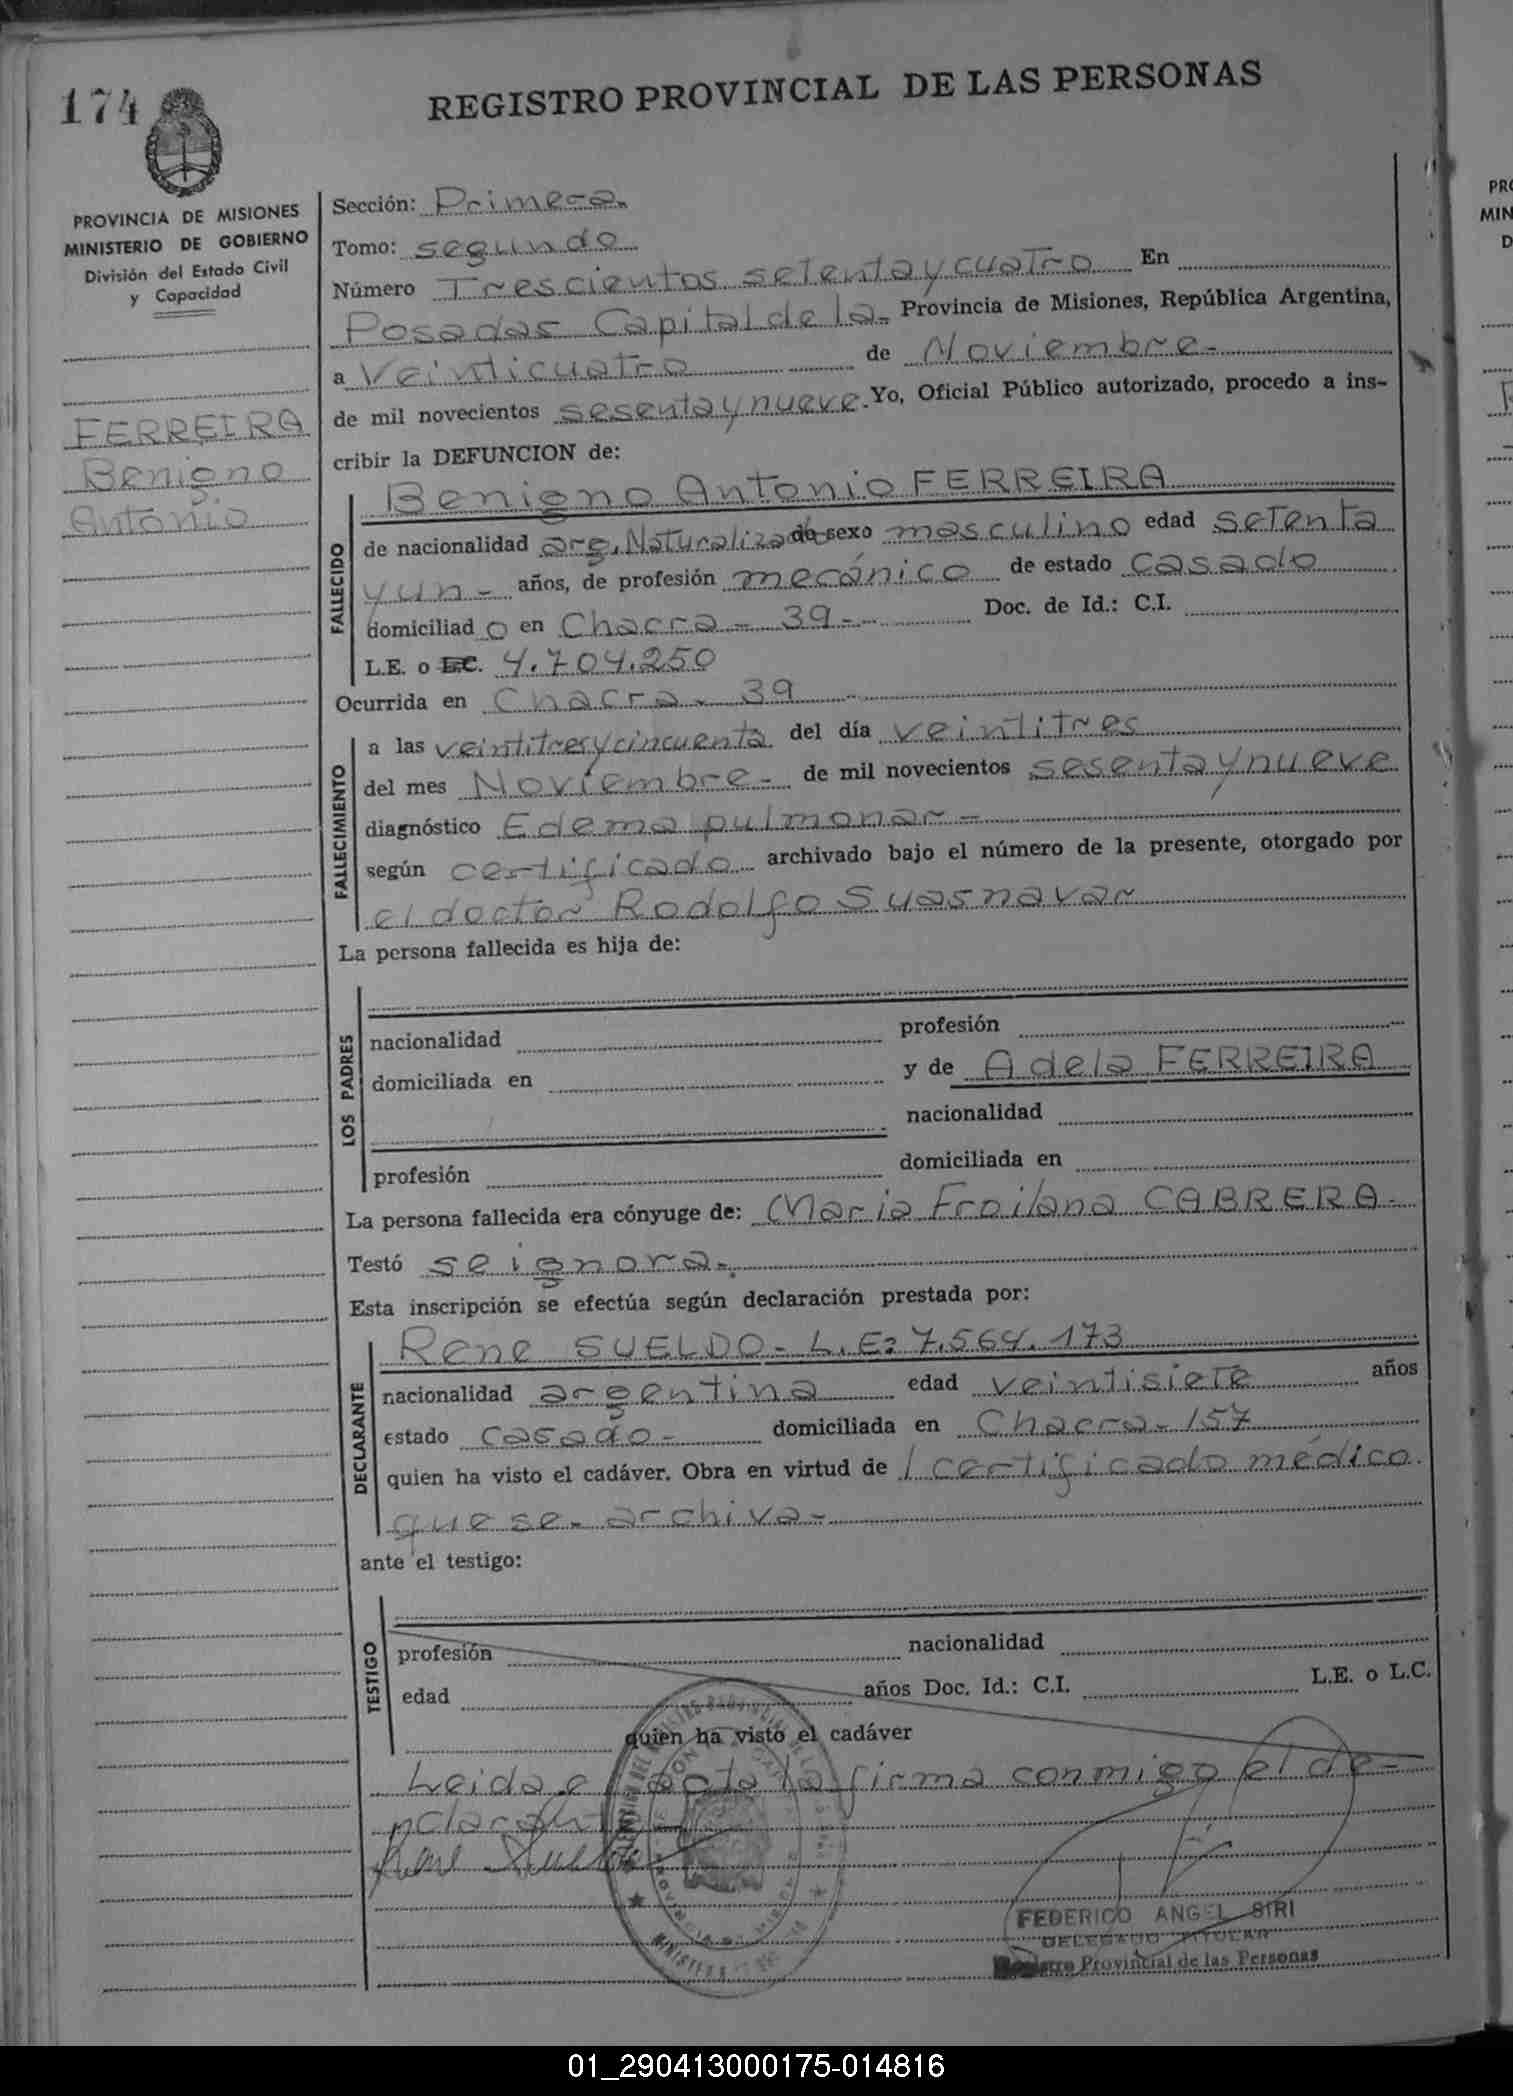 174
REGISTRO PROVINCIAL DE LAS PERSONAS
PROVINCIA DE MISIONES
MINISTERIO DE GOBIERNO
División del Estado Civil
y Capacidad
FERREIRA
Benigno
Antonio
Sección: Primera.
Tomo: segundo
Número Trescientos setenta y cuatro En
Posadas Capital de la- Provincia de Misiones, República Argentina,
a veinticuatro de Noviembre-
de mil novecientos sesenta y nueve. Yo, Oficial Público autorizado, procedo a ins-
cribir la DEFUNCION de:
FALLECIDO
Benigno Antonio FERREIRA
de nacionalidad arg. Naturalizado de sexo masculino edad setenta
y un- años, de profesión mecánico de estado casado
domiciliad o en Chacra - 39- Doc. de Id.: C.I.
L.E. o L.C. 4.704.250
Ocurrida en Chacra - 39
FALLECIMIENTO
a las veintitres y cincuenta del día veintitres
del mes Noviembre- de mil novecientos sesenta y nueve
diagnóstico Edema pulmonar-
según certificado archivado bajo el número de la presente, otorgado por
el doctor Rodolfo Suasnavar
La persona fallecida es hija de:
LOS PADRES
nacionalidad profesión
domiciliada en y de Adela FERREIRA
nacionalidad
profesión domiciliada en
La persona fallecida era cónyuge de: Maria Froilana CABRERA-
Testó se ignora-.
Esta inscripción se efectúa según declaración prestada por:
DECLARANTE
Rene SUELDO- L.E: 7.564.173
nacionalidad argentina edad veintisiete años
estado casado- domiciliada en Chacra-157
quien ha visto el cadáver. Obra en virtud de / certificado médico
que se- archiva-
ante el testigo:
TESTIGO
profesión nacionalidad
edad años Doc. Id.: C.I. L.E. o L.C.
quien ha visto el cadáver
Leida el acta la firma conmigo el de-
Rene Sueldo
FEDERICO ANGEL SIRI
DELEGADO TITULAR
Registro Provincial de las Personas
01_290413000175-014816